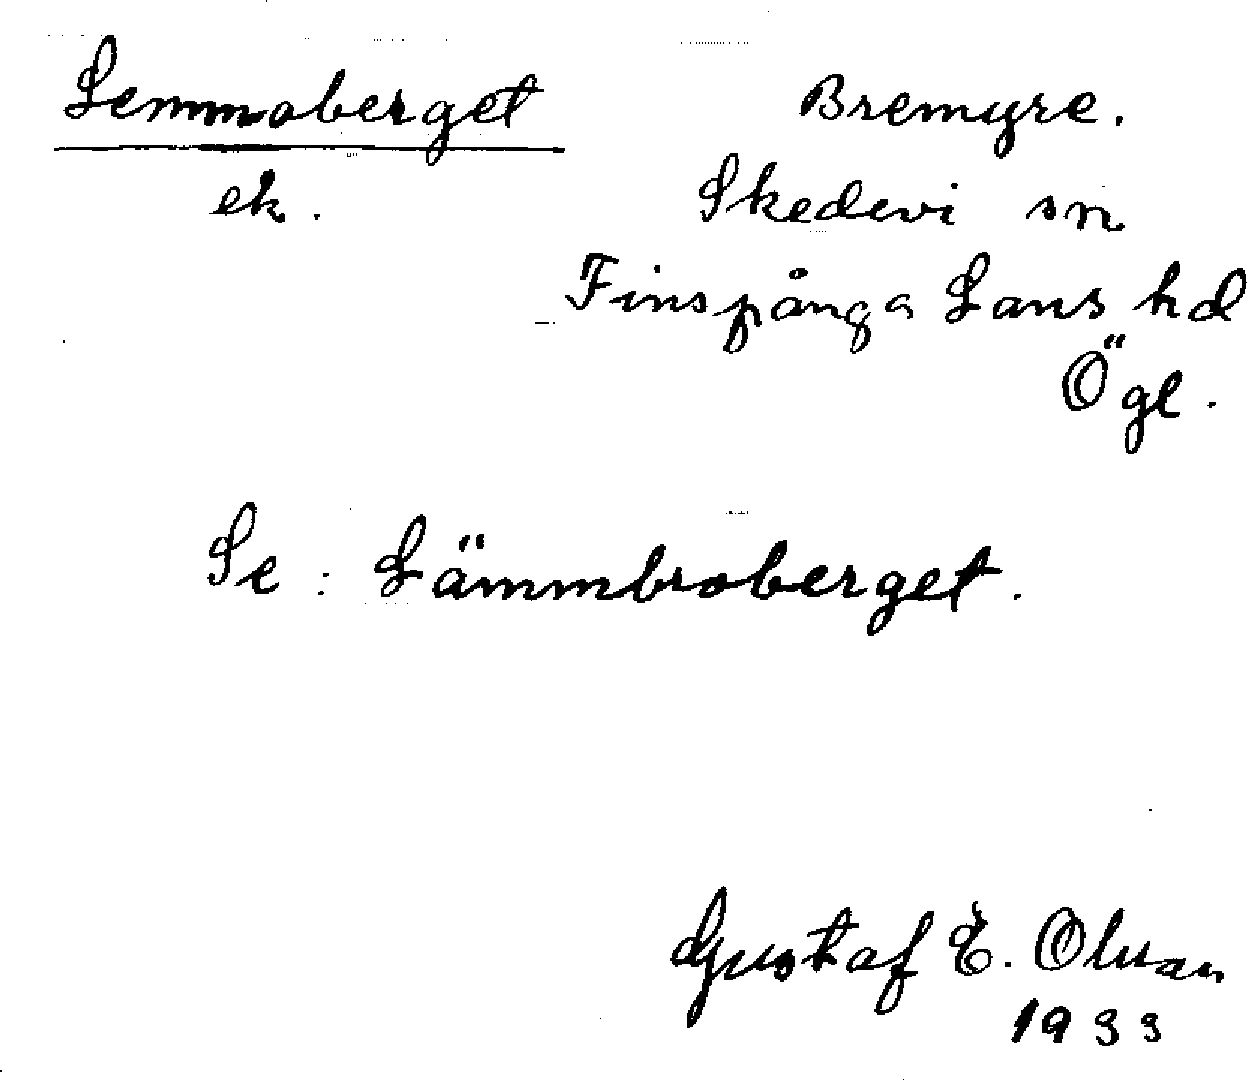 Lemmoberget
ek.
Bremyre.
Skedevi sn
Finspånga Läns hd
Ögl.
Se: Lämmbroberget.
Gustaf E. Olsson
1933